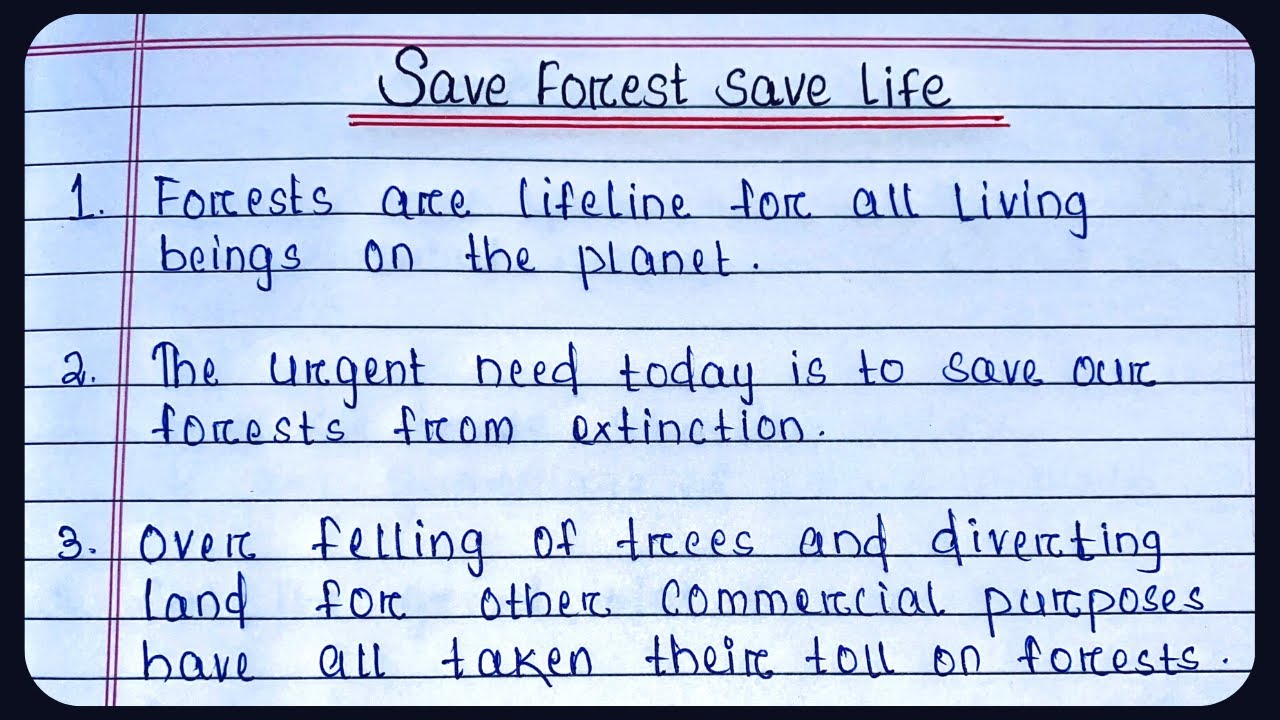 Save Forest Save Life
1. Forests are lifeline for all living
beings on the planet.
2. The urgent need today is to save our
forests from extinction.
3. Over felling of trees and diverting
land for other commercial purposes
have all taken their toll on forests.